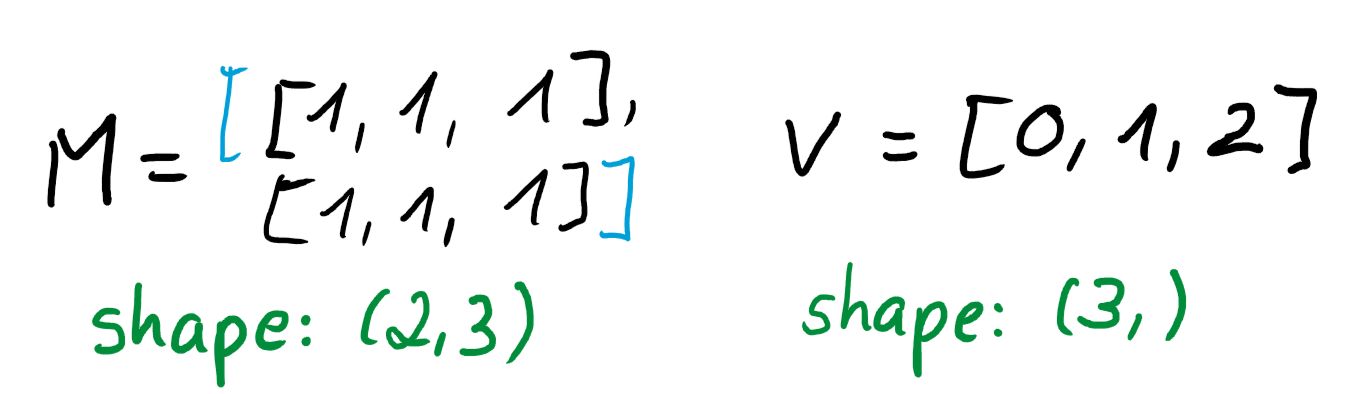 M = [[1, 1, 1],
[1, 1, 1]]
shape: (2,3)
v = [0, 1, 2]
shape: (3,)